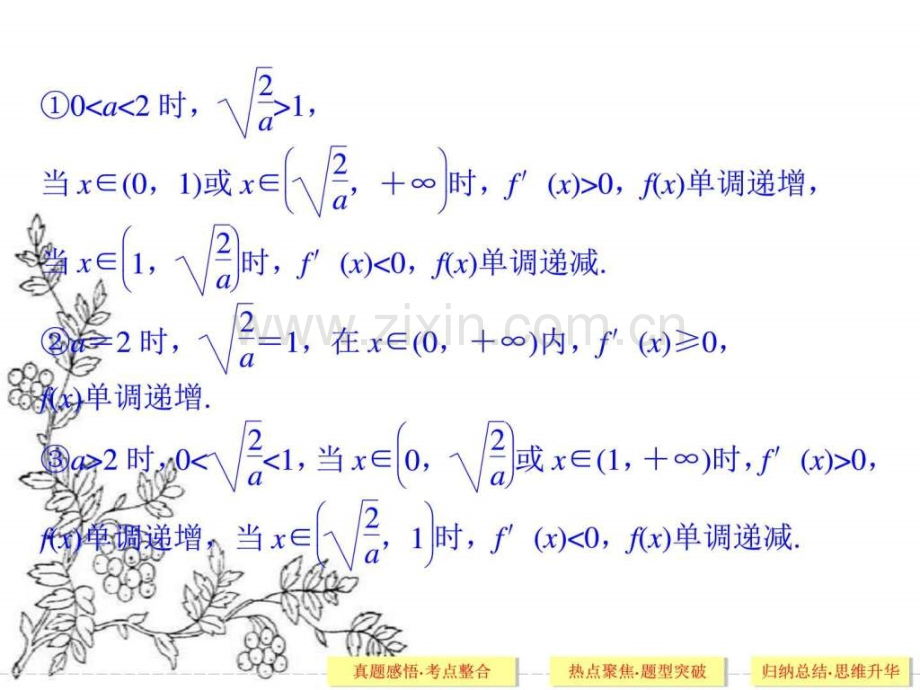 ①0<a<2 时，√(2/a)>1，
当 x∈(0，1)或 x∈(√(2/a)，＋∞)时，f′(x)>0，f(x)单调递增，
当 x∈(1，√(2/a))时，f′(x)<0，f(x)单调递减.
www.zixin.com.cn
②a＝2 时，√(2/a)＝1，在 x∈(0，＋∞)内，f′(x)≥0，
f(x)单调递增.
③a>2 时，0<√(2/a)<1，当 x∈(0，√(2/a))或 x∈(1，＋∞)时，f′(x)>0，
f(x)单调递增，当 x∈(√(2/a)，1)时，f′(x)<0，f(x)单调递减.
真题感悟·考点整合 热点聚焦·题型突破 归纳总结·思维升华